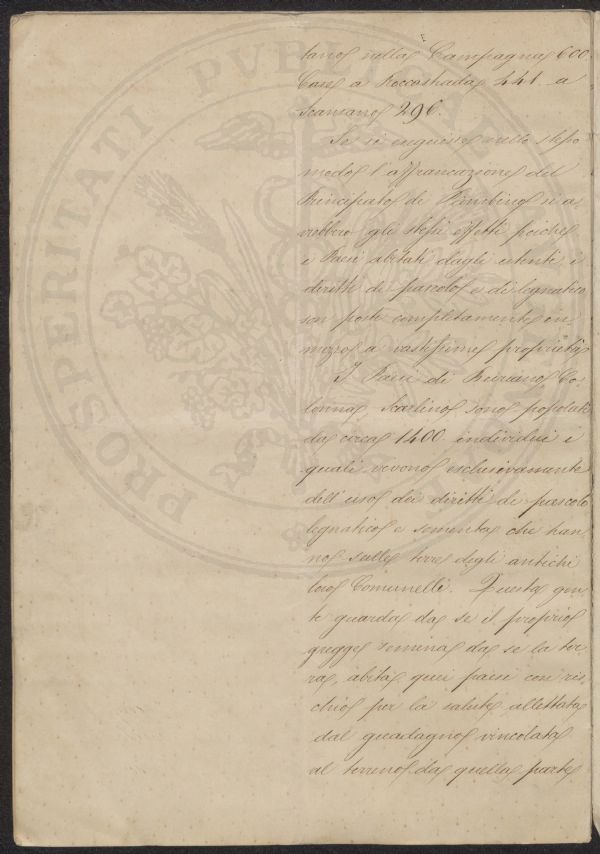 PROSPERITATI PUBLICAE
tano nella Campagna 600
Case a Roccastrada 441 a
Scansano 296.
Se si eseguisse nello stesso
modo l'affrancazione del
Principato di Piombino si a-
vrebbero gli stessi effetti poiche
i Paesi abitati dagli utenti i
diritti di pascolo e di legnatico
son posti completamente in
mezzo a vastissime proprietà
I Paesi di Buriano Co-
lonna, Scarlino sono popolati
da circa 1400 individui i
quali vivono esclusivamente
dell'uso dei diritti di pascolo
legnatico e sementa che han-
no sulle terre degli antichi
loro Comunelli. Questa gen-
te guarda da se il proprio
gregge semina da se la ter-
ra, abita quei paesi con ris-
chio per la salute allettata
dal guadagno vincolata
al terreno da quella parte